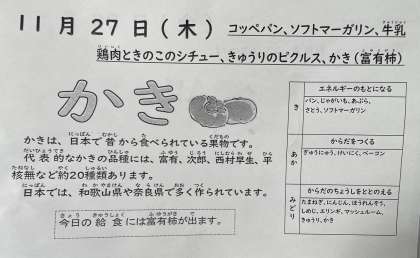 11月27日(木) コッペパン、ソフトマーガリン、牛乳
鶏肉ときのこのシチュー、きゅうりのピクルス、かき(富有柿)
かき
かきは、日本で昔から食べられている果物です。
代表的なかきの品種には、富有、次郎、西村早生、平
核無など約20種類あります。
日本では、和歌山県や奈良県で多く作られています。
今日の給食には富有柿が出ます。
き
エネルギーのもとになる
パン、じゃがいも、あぶら、
さとう、ソフトマーガリン
あか
からだをつくる
ぎゅうにゅう、けいにく、ベーコン
みどり
からだのちょうしをととのえる
たまねぎ、にんじん、ほうれんそう、
しめじ、エリンギ、マッシュルーム、
きゅうり、かき